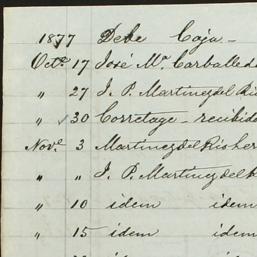 1877 Debe Caja —
Octe. 17 José Ma. Carballed
" 27 J. P. Martinez del Ri
" 30 Corretage - recibid
Nove. 3 Martinez del Rio her
" " J. P. Martinez del R
" 10 idem idem
" 15 idem idem